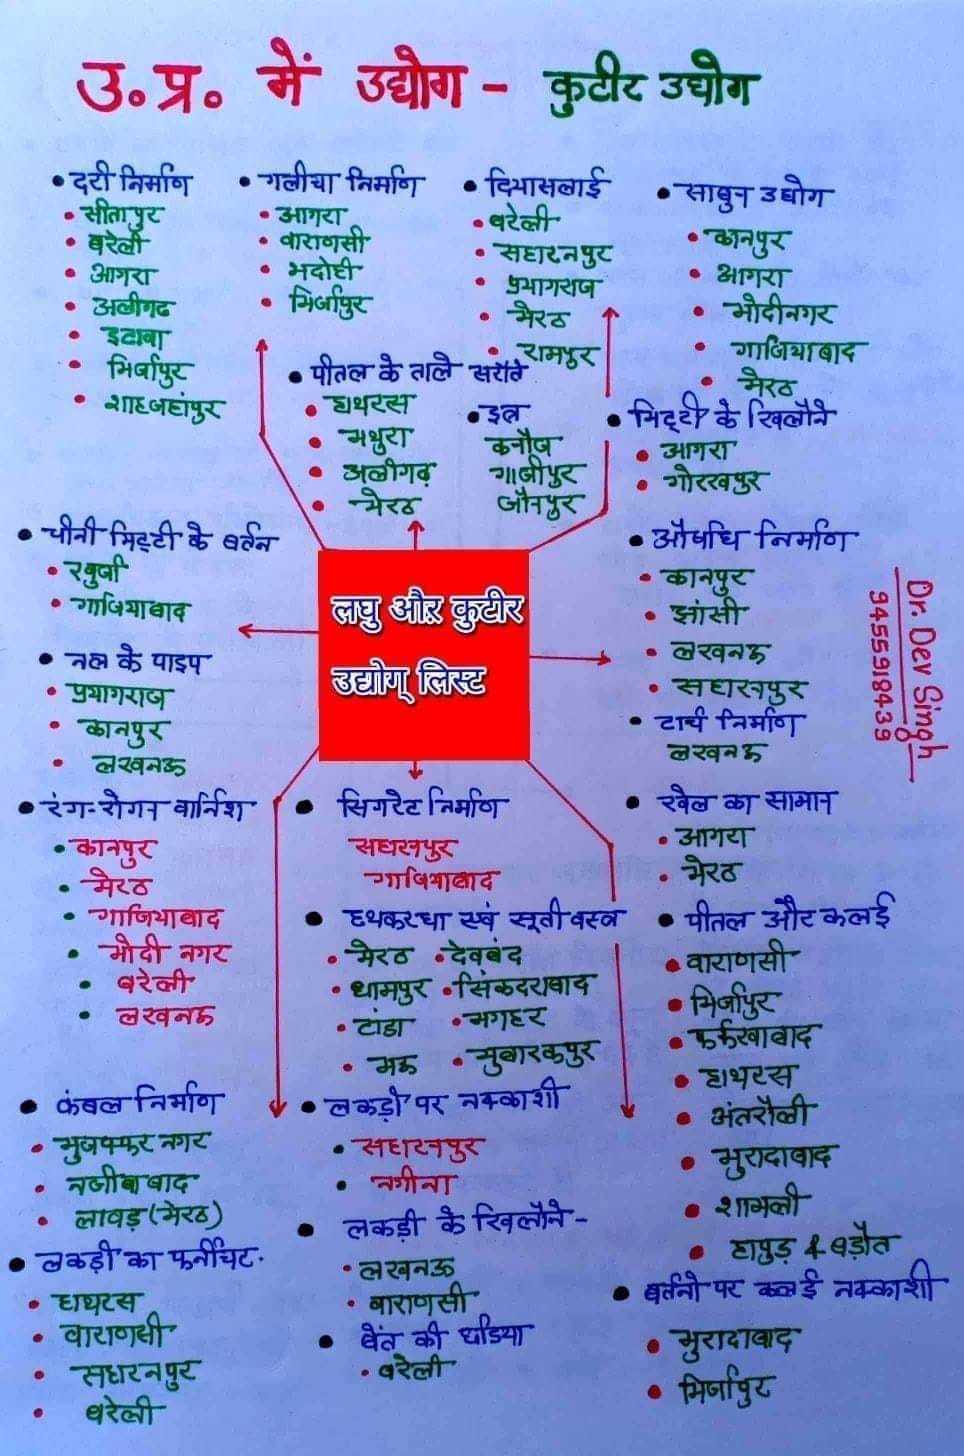 उ. प्र. में उद्योग - कुटीर उद्योग
• दरी निर्माण
• सीतापुर
• बरेली
• आगरा
• अलीगढ
• इटावा
• मिर्जापुर
• शाहजहांपुर
• गलीचा निर्माण
• आगरा
• वाराणसी
• भदोही
• मिर्जापुर
• दियासलाई
• बरेली
• सहारनपुर
• प्रयागराज
• मेरठ
• रामपुर
• साबुन उद्योग
• कानपुर
• आगरा
• मोदीनगर
• गाजियाबाद
• मेरठ
• पीतल के ताले सरौते
• हाथरस
• मथुरा
• अलीगढ़
• मेरठ
• इत्र
कनौज
गाजीपुर
जौनपुर
• मिट्टी के खिलौने
• आगरा
• गोरखपुर
• चीनी मिट्टी के बर्तन
• खुर्जा
• गाजियाबाद
• नल के पाइप
• प्रयागराज
• कानपुर
• लखनऊ
लघु और कुटीर
उद्योग् लिस्ट
• औषधि निर्माण
• कानपुर
• झांसी
• लखनऊ
• सहारनपुर
• टार्च निर्माण
लखनऊ
Dr. Dev Singh
9455918439
• रंग-रोगन वार्निश
• कानपुर
• मेरठ
• गाजियाबाद
• मोदी नगर
• बरेली
• लखनऊ
• सिगरेट निर्माण
सहारनपुर
गाजियाबाद
• हथकरघा एवं सूती वस्त्र
• मेरठ • देवबंद
• धामपुर • सिंकदराबाद
• टांडा • मगहर
• मऊ • मुबारकपुर
• खेल का सामान
• आगरा
• मेरठ
• पीतल और कलई
• वाराणसी
• मिर्जापुर
• फर्रुखाबाद
• हाथरस
• अंतरौली
• मुरादाबाद
• शामली
• हापुड़ & बड़ौत
• कंबल निर्माण
• मुजफ्फर नगर
• नजीबाबाद
• लावड़ (मेरठ)
• लकड़ी पर नक्काशी
• सहारनपुर
• नगीना
• लकड़ी के खिलौने -
• लखनऊ
• वाराणसी
• बेंत की छडिया
• बरेली
• लकड़ी का फर्नीचर.
• हाथरस
• वाराणसी
• सहारनपुर
• बरेली
• बर्तनो पर कलई नक्काशी
• मुरादाबाद
• मिर्जापुर